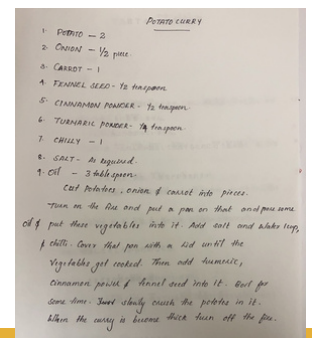 POTATO CURRY
1. POTATO – 2
2. ONION – 1/2 piece.
3. CARROT – 1
4. FENNEL SEED - 1/2 teaspoon.
5. CINNAMON POWDER - 1/2 teaspoon
6. TURMARIC POWDER - 1/4 teaspoon
7. CHILLY – 1
8. SALT - As required.
9. Oil – 3 table spoon.
Cut Potatoes, onion & carrot into pieces.
Turn on the fire and put a pan on that and pour some
oil & put these vegetables into it. Add salt and water 1cup,
& chilli. Cover that pan with a lid until the
Vegetables get cooked. Then add tumeric,
cinnamon power & fennel seed into it. Boil for
some time. Just slowly crush the potatos in it.
When the curry is become thick turn off the fire.